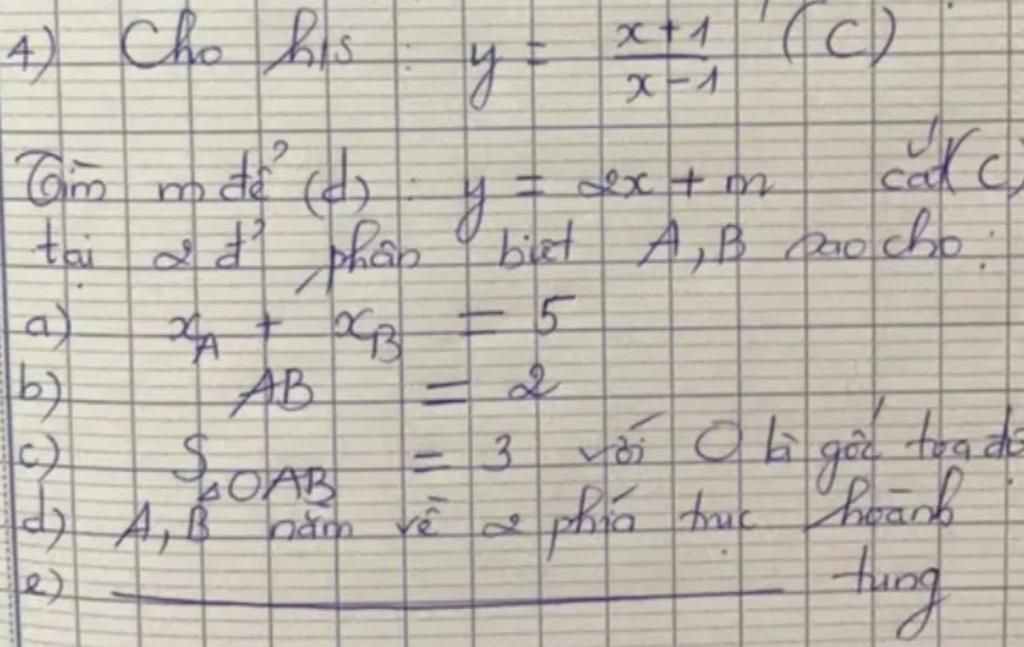 4) Cho h/s : y = \frac{x+1}{x-1} (C)
Tìm m để (d) : y = 2x + m cắt (C)
tại 2 đ' phân biệt A, B sao cho:
a) x_A + x_B = 5
b) AB = 2
c) S_{△OAB} = 3 với O là gốc toạ độ
d) A, B nằm về 2 phía trục hoành
e) ———————— tung